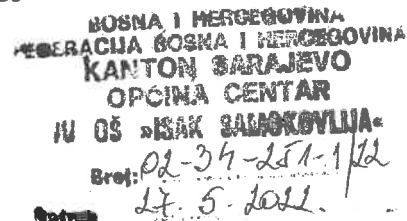 BOSNA I HERCEGOVINA
FEDERACIJA BOSNA I HERCEGOVINA
KANTON SARAJEVO
OPĆINA CENTAR
JU OŠ »ISAK SAMOKOVLIJA«
Broj: 02-34-251-1/22
27. 5. 2022.